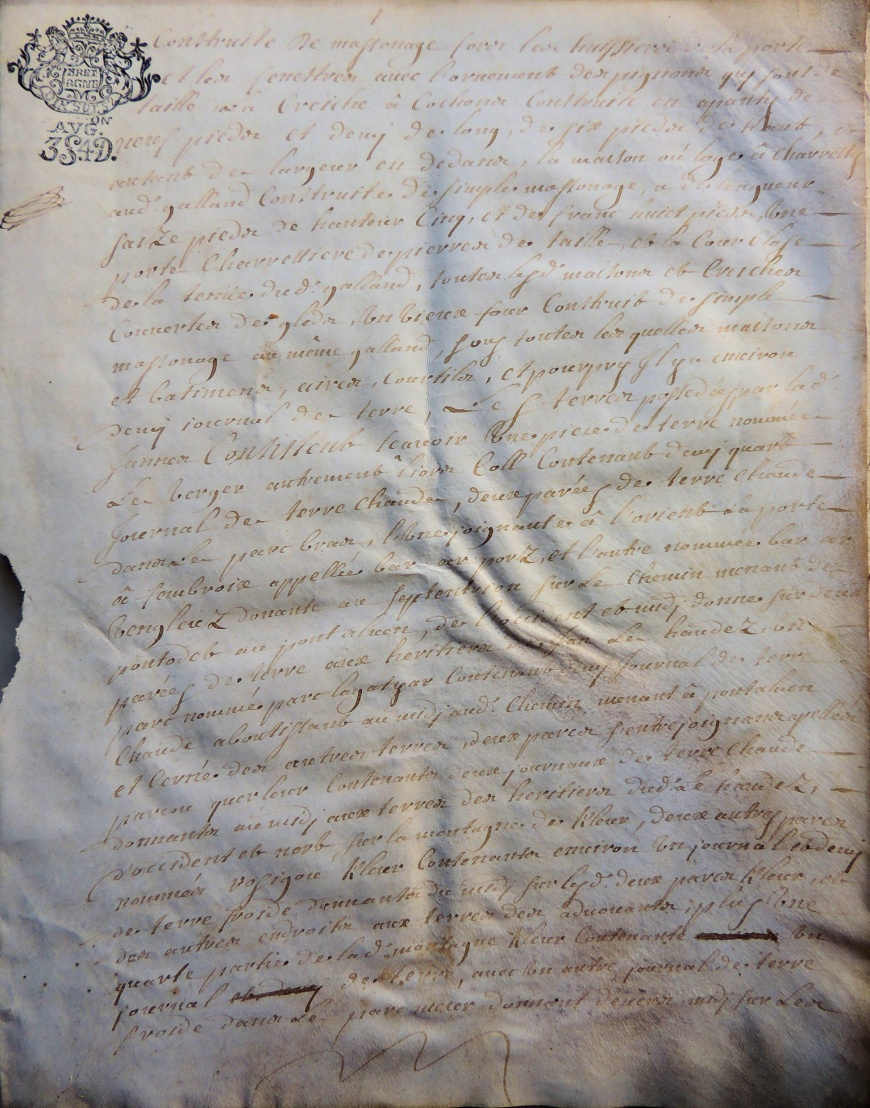 1
BRET
AGNE
SIX SD LA
DN
AVG.
3S4D.
Construite de massonage fors les huisseries de la porte
et les fenestres avec l'ornement des pignons qui sont de
taille, la Creiche à Cochons Construite en apanty de
neuf pieds et demy de long, de six pieds de haut, et
autant de largeur en dedans, la maison où loge la Charrette
aud. galland Construite de simple massonage, a de longueur
saize pieds de hauteur Cinq, et de franc huict pieds, une
porte Charrettiere de pierres de taille, et la Cour Close
de la tenüe dud. galland, toutes lesd. maisons et Creiches
Couvertes de gleds, un vieux four Construit de simple
massonage au même galland, sous toutes lesquelles maisons
et batimens, aires, Courtils, et pourpry Il y a environ
demy journal de terre, Les terres possedées par lad.
Jannes Consistent scavoir Une piece de terre nommée
Le verger autrement Liors Coll Contenant demy quart
Journal de terre Chaude, deux parées de terre Chaude
dans le parc bras, l'Une joignante à l'orient à la porte
à Lambroix appellée bar ar porz, et l'autre nommée bar ar
venglenz donante au septentrion sur le Chemin menant de
pontodeb au pont aluen, de l'occident et midy donne sur deux
parées de terre aux heritiers de Jan Le haudez, un
parc nommé parc lagatyar Contenant demy Journal de terre
Chaude aboutissant au midy aud. Chemin menant à pontaluen
et Cernée des autres terres, deux parcs s'entrejoignans apellés
parcou querleur Contenants deux journaux de terre Chaude
donnants au midy aux terres des heritiers dud. Le haudez,
d'occident et nord, sur la montagne de Kleur, deux autres parcs
nommés rosigou Kleur Contenants environ un journal et demy
de terre froide donnants du midy sur lesd. deux parcs Kleur, et
des autres endroits aux terres des advouants, plus Une
quarte partie de lad. montagne Kleur Contenante un
journal de terre, avec un autre journal de terre
froide dans Le parc meur donnant devers midy sur Les